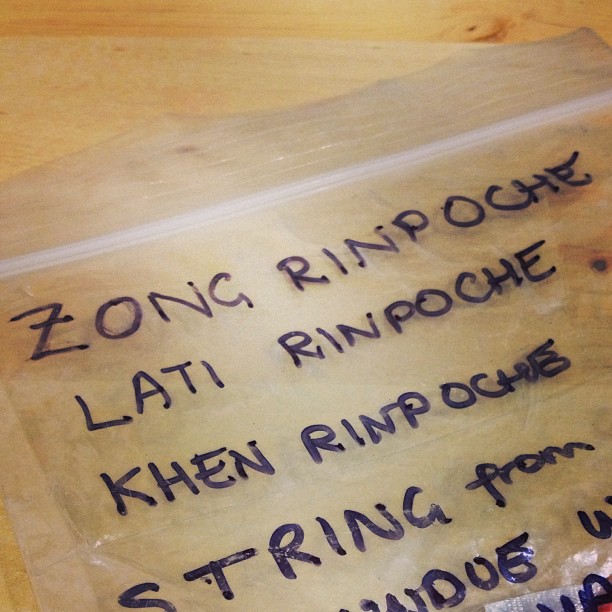 ZONG RINPOCHE
LATI RINPOCHE
KHEN RINPOCHE
STRING from